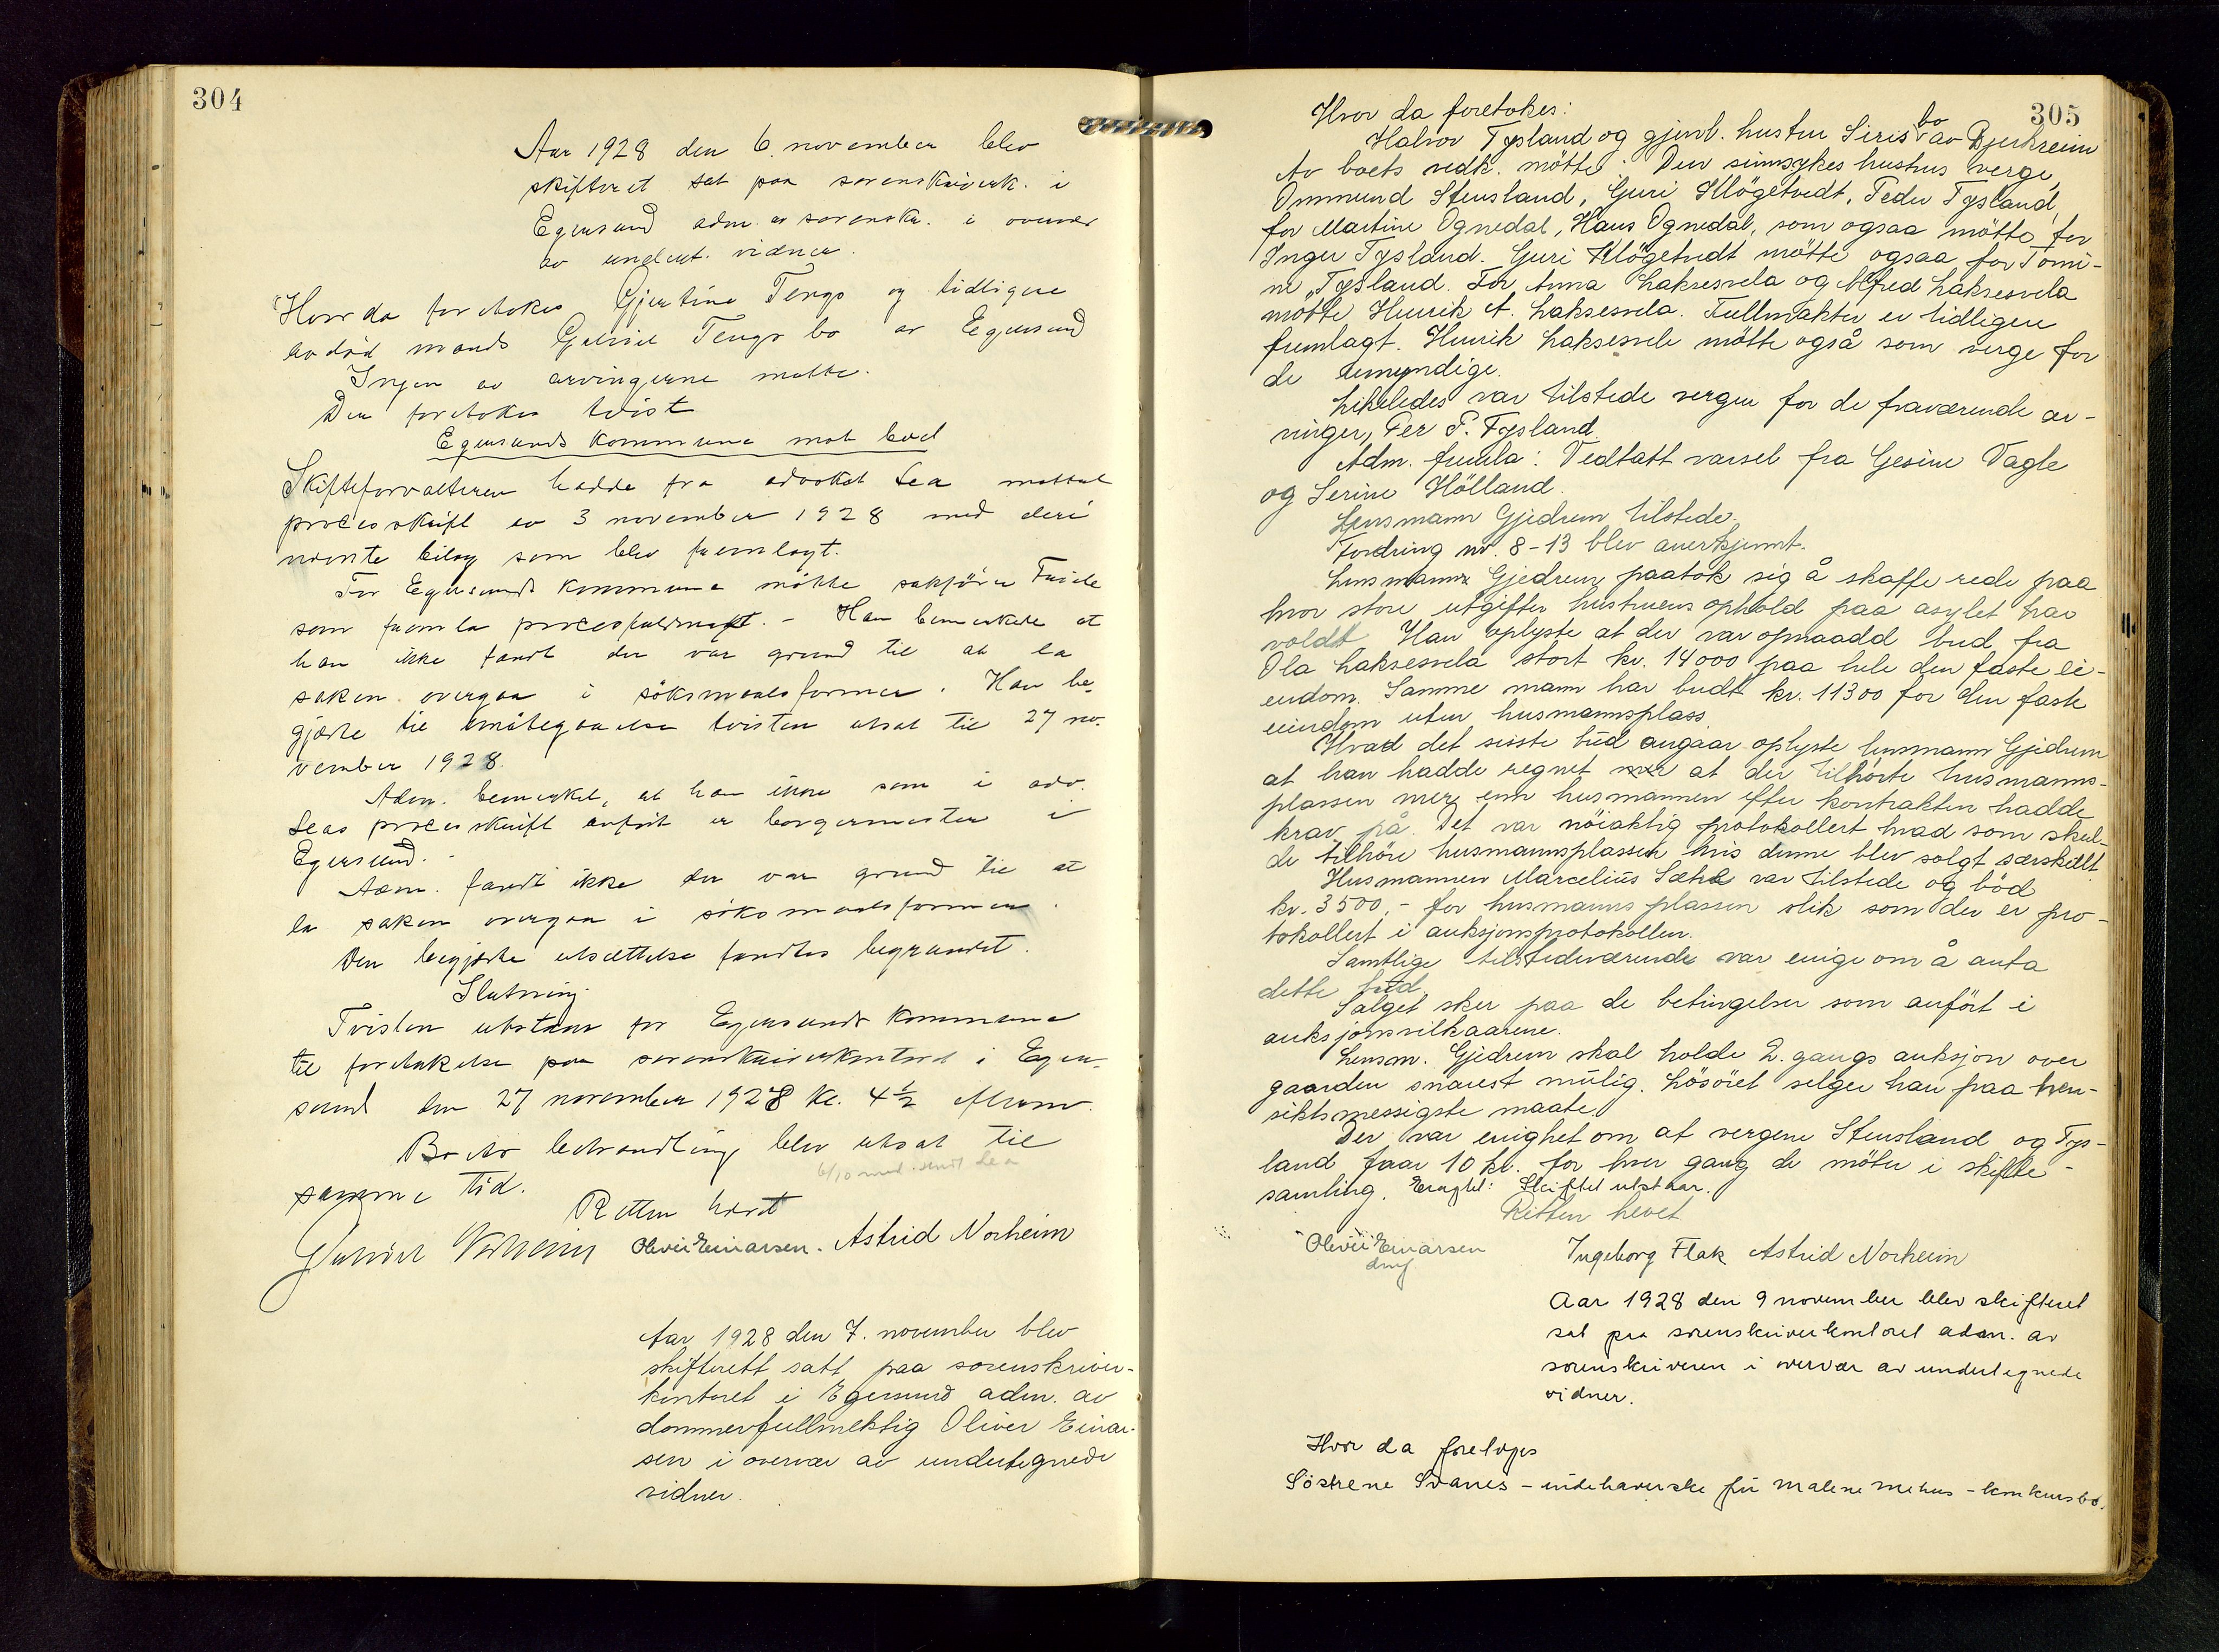 304
Aar 1928 den 6. november blev
skifteret sat paa sorenskriverk. i
Egersund adm. av sorenskr. i overvær
av undert. vidner.
Hvor da foretokes Gjertine Tengs og tidligere
avdød mands Gabriel Tengs bo av Egersund
Ingen av arvingerne møtte.
Der foretokes tvist
Egersunds kommune mot boet
Skifteforvalteren hadde fra advokat Lea mottat
processkrift av 3 november 1928 med deri
nævnte bilag som blev fremlagt.
For Egersunds kommune møtte sakfører
som fremla procesfuldmagt. - Han bemerkede at
han ikke fandt der var grund til at la
saken overgaa i søksmaalsformer. Han be-
gjærte til imøtegaaelse tvisten utsat til 27 no-
vember 1928.
Adm. bemerket, at han ikke som i adv.
Leas processkrift anført er borgermester i
Egersund.
Adm. fandt ikke der var grund til at
la saken overgaa i søksmaalsformen.
Den begjærte utsættelse fandtes begrundet.
Slutning
Tvisten utstaar for Egersunds kommune
til foretakelse paa sorenskriverkontoret i Eger-
sund den 27 november 1928 kl. 4½ efterm.
Boets behandling blev utsat til
samme tid.
Retten hævet
Oliver Einarsen. Astrid Norheim
Aar 1928 den 7. november blev
skifterett satt paa sorenskriver-
kontoret i Egersund adm. av
dommerfullmektig Oliver Einar-
sen i overvær av undertegnede
vidner.
305
Hvor da foretokes:
Halvor Tysland og gjenl. hustru Siris bo av Bjerkreim
Av boets vedk. mötte: Den sinnsykes hustrus verge,
Ommund Stensland, Guri Klögetvedt, Peder Tysland,
for Martine Ognedal, Hans Ognedal, som ogsaa mötte for
Inger Tysland. Guri Klögetvedt mötte ogsaa for Tomi-
ne Tysland. For Anna Laksesvela og Alfred Laksesvela
mötte Henrik A. Laksesvela. Fullmakter er tidligere
fremlagt. Henrik Laksesvela mötte også som verge for
de umyndige.
Likeledes var tilstede vergen for de fraværende ar-
vinger, Per P. Tysland.
Adm. fremla: Vedtatt varsel fra Gesine Vagle
og Serine Hölland.
Lensmann Gjedrem tilstede.
Fordring nr. 8-13 blev anerkjennt.
Lensmann Gjedrem paatok sig å skaffe rede paa
hvor store utgifter hustruens ophold paa asylet har
voldt. Han oplyste at der var opnaadd bud fra
Ola Laksesvela stort kr. 14000 paa hele den faste ei-
endom. Samme mann har budt kr. 11300 for den faste
eiendom uten husmannsplass.
Hvad det sisste bud angaar oplyste lensmann Gjedrem
at han hadde regnet at der tilhörte husmanns-
plassen mer enn husmannen efter kontrakten hadde
krav på. Det var nöiaktig protokollert hvad som skul-
de tilhöre husmannsplassen hvis denne blev solgt særskillt.
Husmannen Marcelius Sæthe var tilstede og böd
kr. 3500,- for husmannsplassen slik som den er pro-
tokollert i auksjonsprotokollen.
Samtlige tilstedeværende var enige om å anta
dette bud.
Salget sker paa de betingelser som anfört i
auksjonsvilkaarene.
Lensm. Gjedrem skal holde 2. gangs auksjon over
gaarden snarest mulig. Lösöret selger han paa hen-
siktsmessigste maate.
Der var enighet om at vergene Stensland og Tys-
land faar 10 kr. for hver gang de möter i skifte-
samling. Skiftet utstaar.
Retten hevet
Oliver Einarsen
dmf
Ingeborg Flak Astrid Norheim
Aar 1928 den 9 november blev skifteret
sat paa sorenskriverkontoret adm. av
sorenskriveren i overvær av undertegnede
vidner.
Hvor da foretoges
Söstrene Svanes - indehaverske fru Malene Mehus - konkursbo.